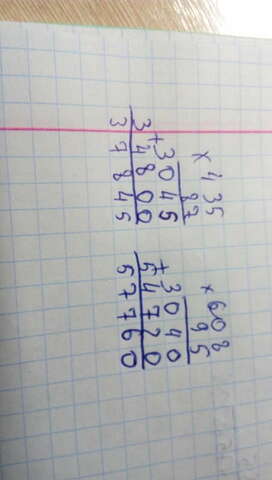 × 435
87
3045
+
34800
37845
× 608
95
3040
+
54720
57760